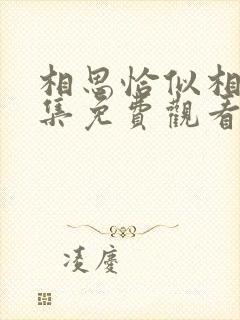 相思恰似相
集免費觀看
凌慶